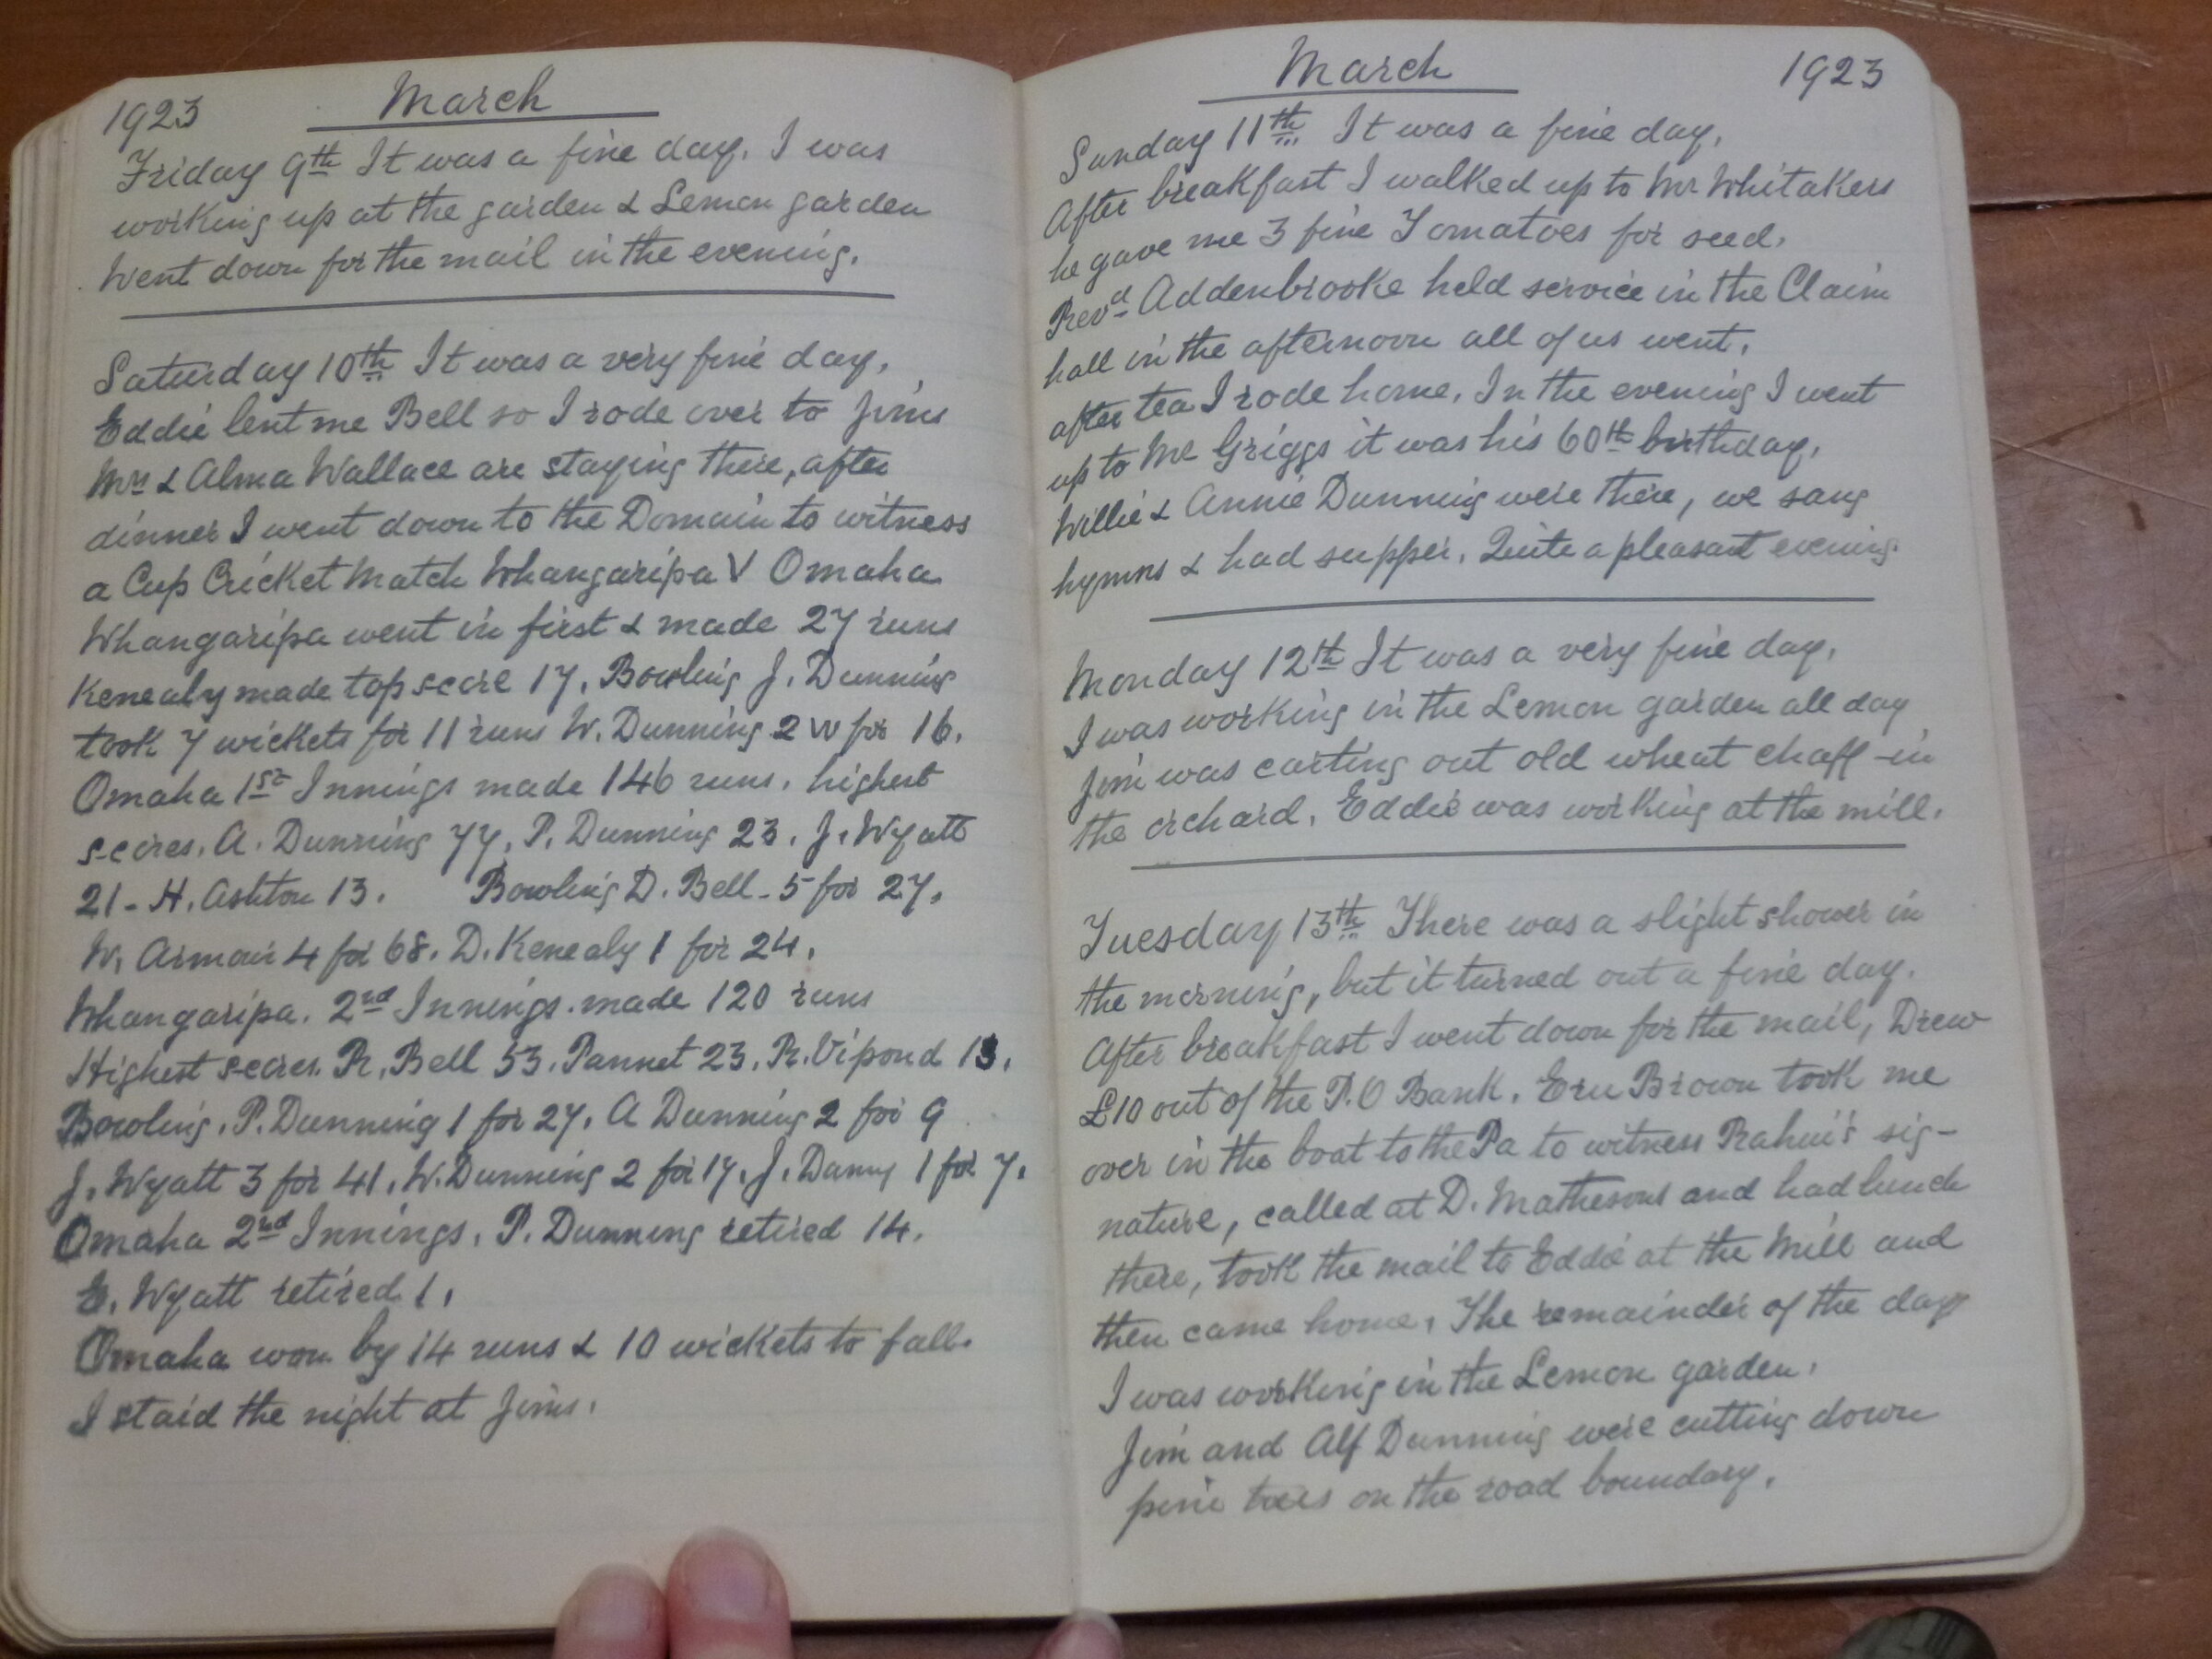 1923 March
Friday 9th It was a fine day. I was
working up at the garden & Lemon garden
Went down for the mail in the evening.
Saturday 10th It was a very fine day.
Eddie lent me Bell so I rode over to Jims
Mrs & Alma Wallace are staying there, after
dinner I went down to the Domain to witness
a Cup Cricket Match Whangaripa V Omaha
Whangaripa went in first & made 27 runs
Kenealy made top score 17. Bowling J. Dunning
took 7 wickets for 11 runs W. Dunning 2 w for 16.
Omaha 1st Innings made 146 runs. highest
scores. A. Dunning 77. P. Dunning 23. J. Wyatt
21 - H. Ashton 13. Bowling D. Bell - 5 for 27.
W. 4 for 68. D. Kenealy 1 for 24.
Whangaripa. 2nd Innings. made 120 runs
Highest scores. R. Bell 53. Pannet 23. R. Vipond 13.
Bowling. P. Dunning 1 for 27. A Dunning 2 for 9
J. Wyatt 3 for 41. W. Dunning 2 for 17. J. 1 for 7.
Omaha 2nd Innings. P. Dunning retired 14.
E. Wyatt retired 1.
Omaha won by 14 runs & 10 wickets to fall.
I staid the night at Jims.
March 1923
Sunday 11th It was a fine day.
After breakfast I walked up to Mr Whitakers
he gave me 3 fine Tomatoes for seed.
Revd Addenbrooke held service in the Claim
hall in the afternoon all of us went.
after tea I rode home. In the evening I went
up to Mr Griggs it was his 60th birthday.
Willie & Annie Dunning were there, we sang
hymns & had supper. Quite a pleasant evening.
Monday 12th It was a very fine day.
I was working in the Lemon garden all day
Jim was carting out old wheat chaff in
the orchard. Eddie was working at the mill.
Tuesday 13th There was a slight shower in
the morning, but it turned out a fine day.
After breakfast I went down for the mail, Drew
£10 out of the P.O Bank. Eru Brown took me
over in the boat to the Pa to witness Rahui's sig-
nature, called at D. Mathesons and had lunch
there, took the mail to Eddie at the Mill and
then came home. The remainder of the day
I was working in the Lemon garden.
Jim and Alf Dunning were cutting down
pine trees on the road boundary.